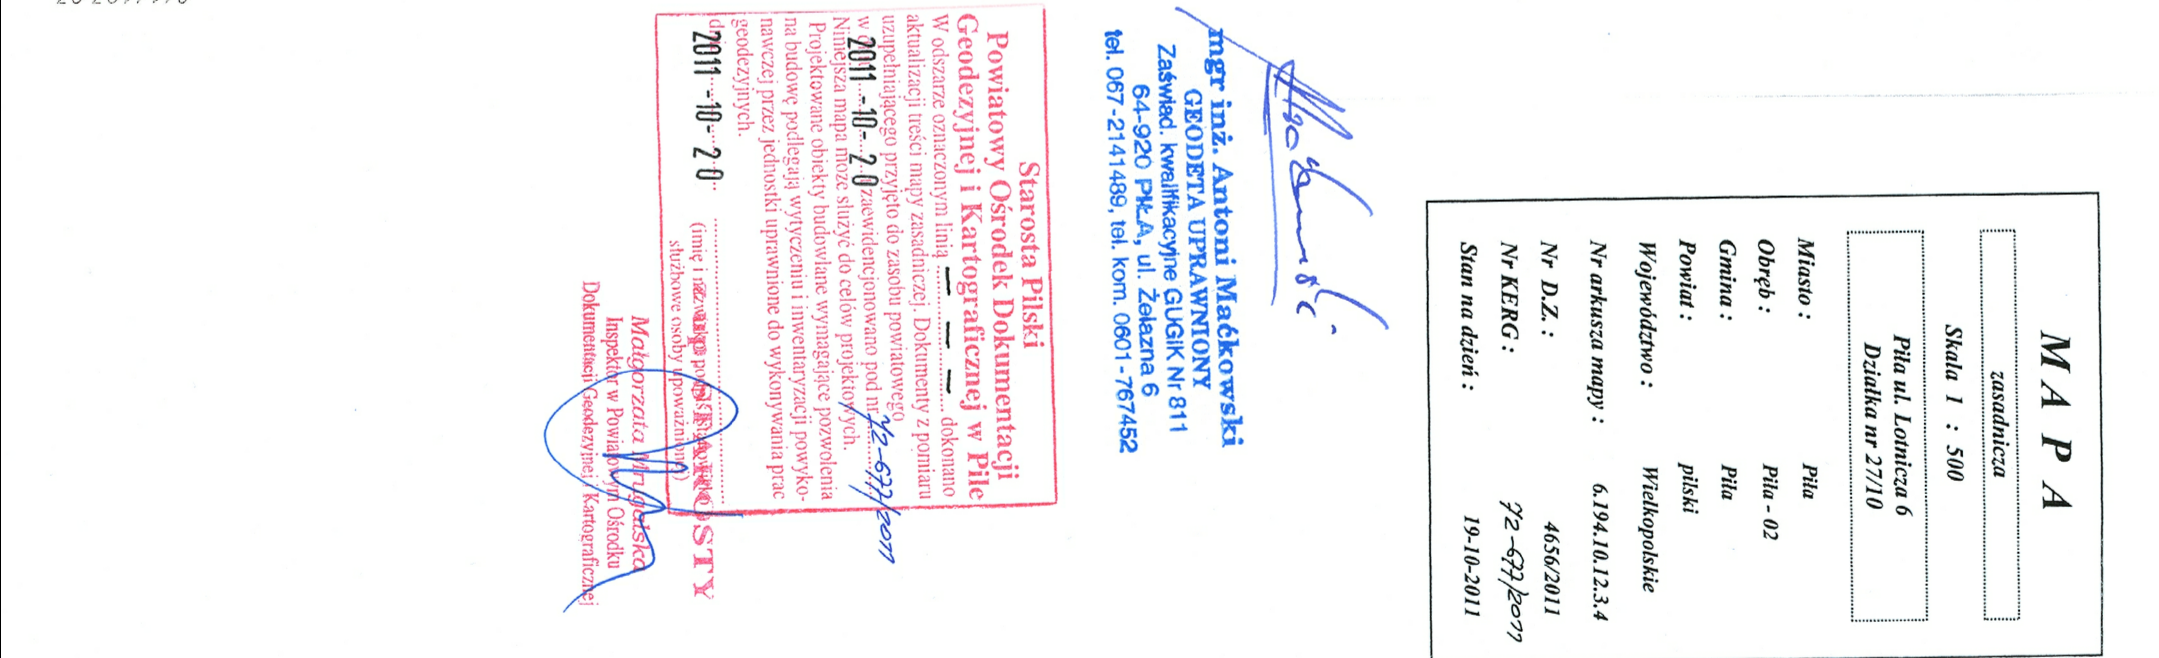 M A P A
zasadnicza
Skala 1 : 500
Piła ul. Lotnicza 6
Działka nr 27/10
Miasto : Piła
Obręb : Piła - 02
Gmina : Piła
Powiat : pilski
Województwo : Wielkopolskie
Nr arkusza mapy : 6.194.10.12.3.4
Nr D.Z. : 4656/2011
Nr KERG : 72-677/2011
Stan na dzień : 19-10-2011
mgr inż. Antoni Maćkowski
GEODETA UPRAWNIONY
Zaświad. kwalifikacyjne GUGiK Nr 811
64-920 PIŁA, ul. Żelazna 6
tel. 067-2141489, tel. kom. 0601-767452
Starosta Pilski
Powiatowy Ośrodek Dokumentacji
Geodezyjnej i Kartograficznej w Pile
W odszarze oznaczonym linią — — — dokonano
aktualizacji treści mapy zasadniczej. Dokumenty z pomiaru
uzupełniającego przyjęto do zasobu powiatowego
w 2011 -10- 20 zaewidencjonowano pod nr 72-677/2011
Niniejsza mapa może służyć do celów projektowych.
Projektowane obiekty budowlane wymagające pozwolenia
na budowę podlegają wytyczeniu i inwentaryzacji powyko-
nawczej przez jednostki uprawnione do wykonywania prac
geodezyjnych.
2011 -10- 20
(imię i
służbowe osoby upoważnionej)
STAROSTY
Małgorzata
Inspektor w Powiatowym Ośrodku
Dokumentacji Geodezyjnej i Kartograficznej